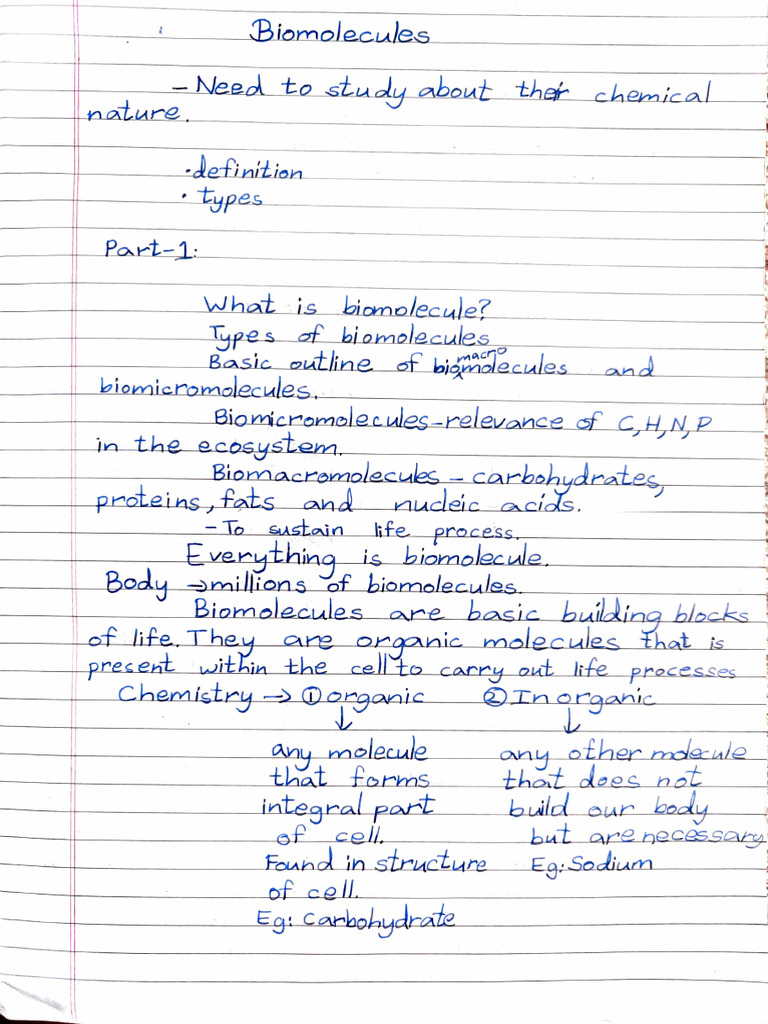 Biomolecules
- Need to study about their chemical
nature.
• definition
• types
Part-1:
What is biomolecule?
Types of biomolecules
Basic outline of biomacromolecules and
biomicromolecules.
Biomicromolecules-relevance of C, H, N, P
in the ecosystem.
Biomacromolecules - carbohydrates,
proteins, fats and nucleic acids.
- To sustain life process.
Everything is biomolecule.
Body → millions of biomolecules.
Biomolecules are basic building blocks
of life. They are organic molecules that is
present within the cell to carry out life processes
Chemistry → ① organic ② Inorganic
↓ ↓
any molecule any other molecule
that forms that does not
integral part build our body
of cell. but are necessary
Found in structure Eg: Sodium
of cell.
Eg: Carbohydrate